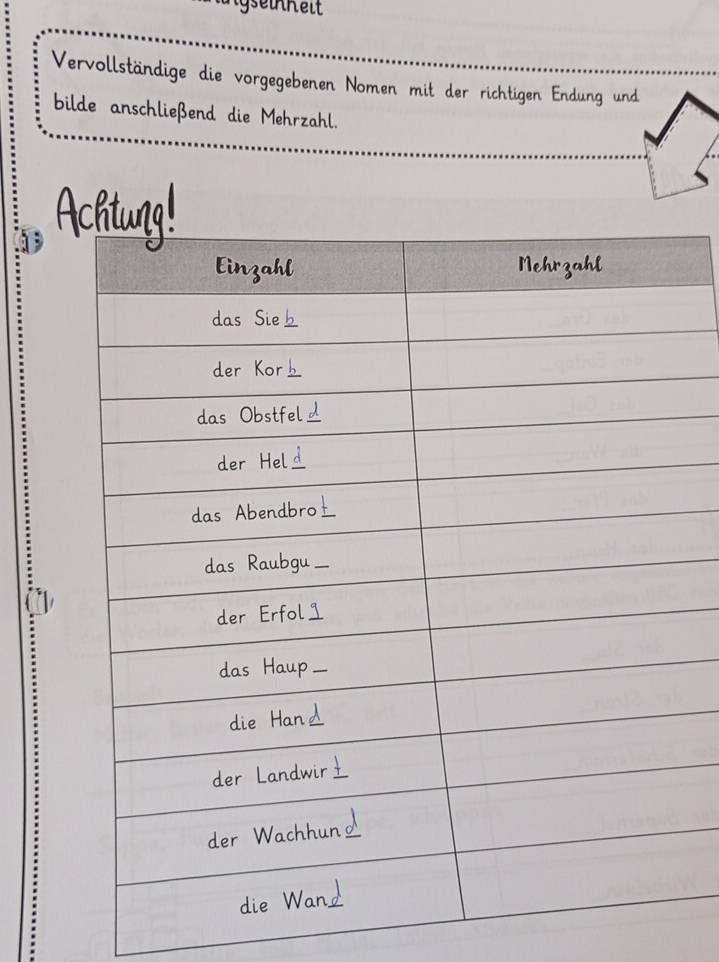 Vervollständige die vorgegebenen Nomen mit der richtigen Endung und
bilde anschließend die Mehrzahl.
Achtung!
Einzahl Mehrzahl
das Sieb
der Korb
das Obstfeld
der Held
das Abendbrot
das Raubgu_
der Erfolg
das Haup_
die Hand
der Landwirt
der Wachhund
die Wand